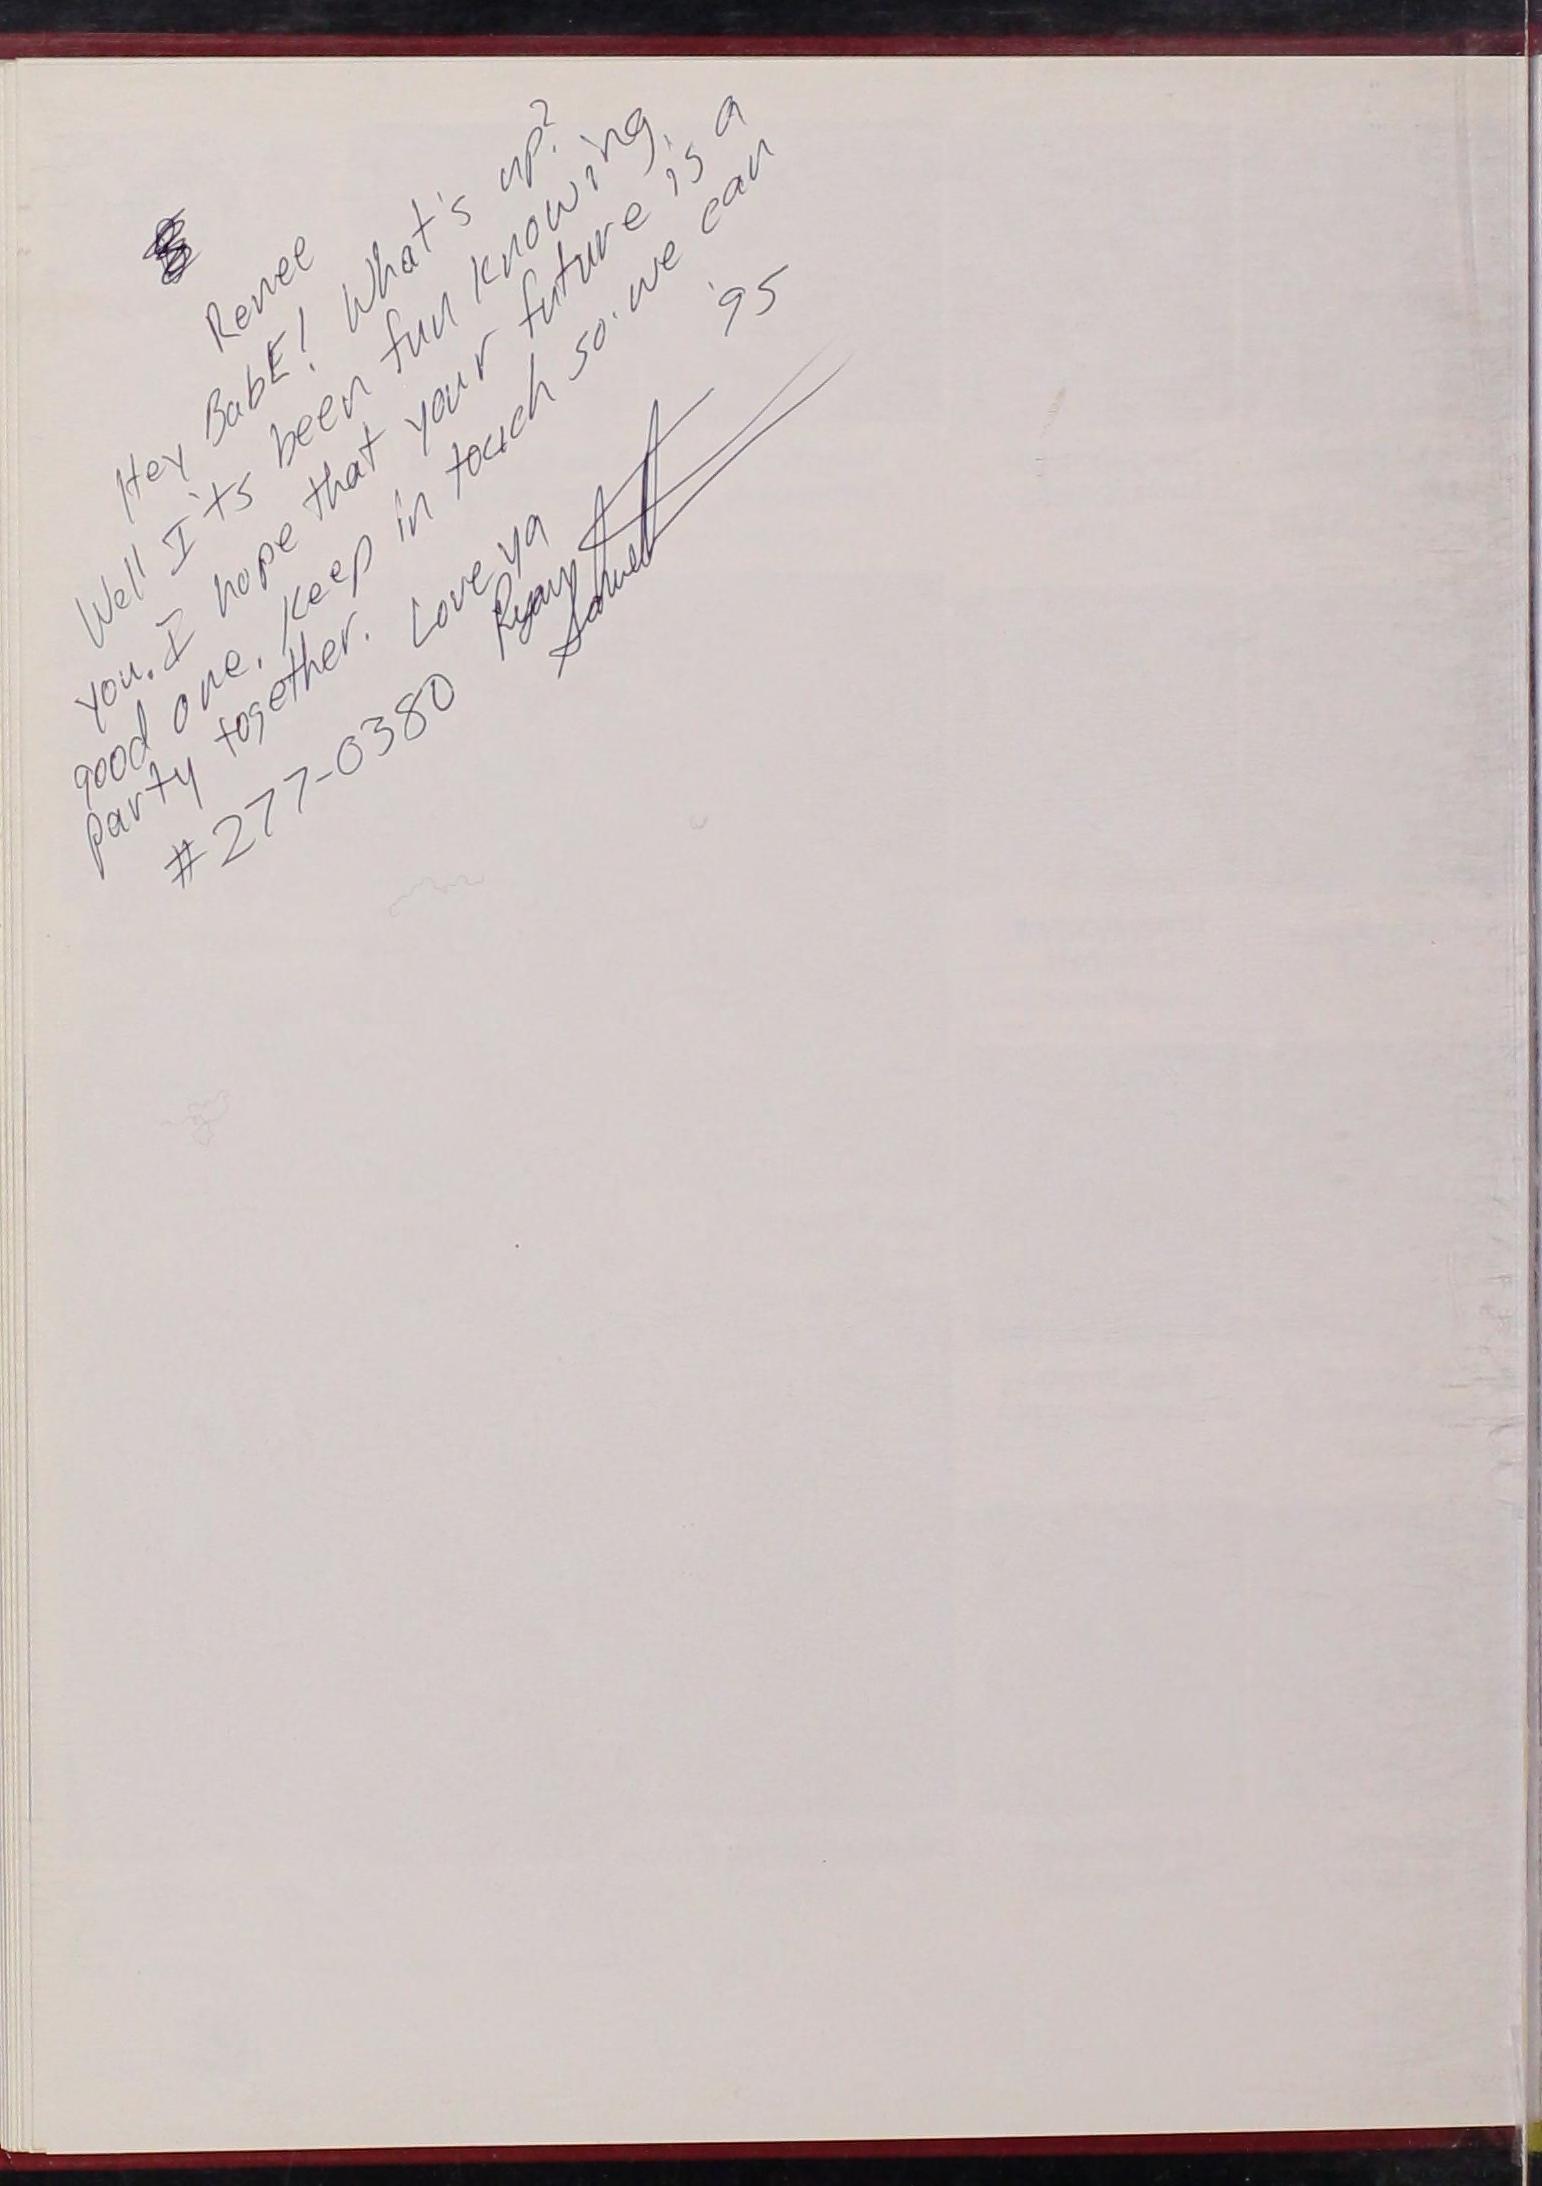 Renee
Hey BabE! What's up?
Well I'ts been fun knowing
you. I hope that your future is a
good one. Keep in touch so we can
party together. Love ya '95
#277-0380 Ryan